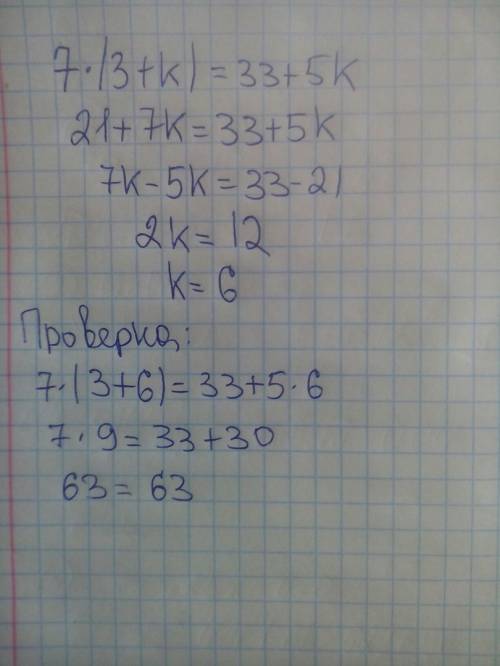 7·(3+k)=33+5k
21+7k=33+5k
7k-5k=33-21
2k=12
k=6
Проверка:
7·(3+6)=33+5·6
7·9=33+30
63=63